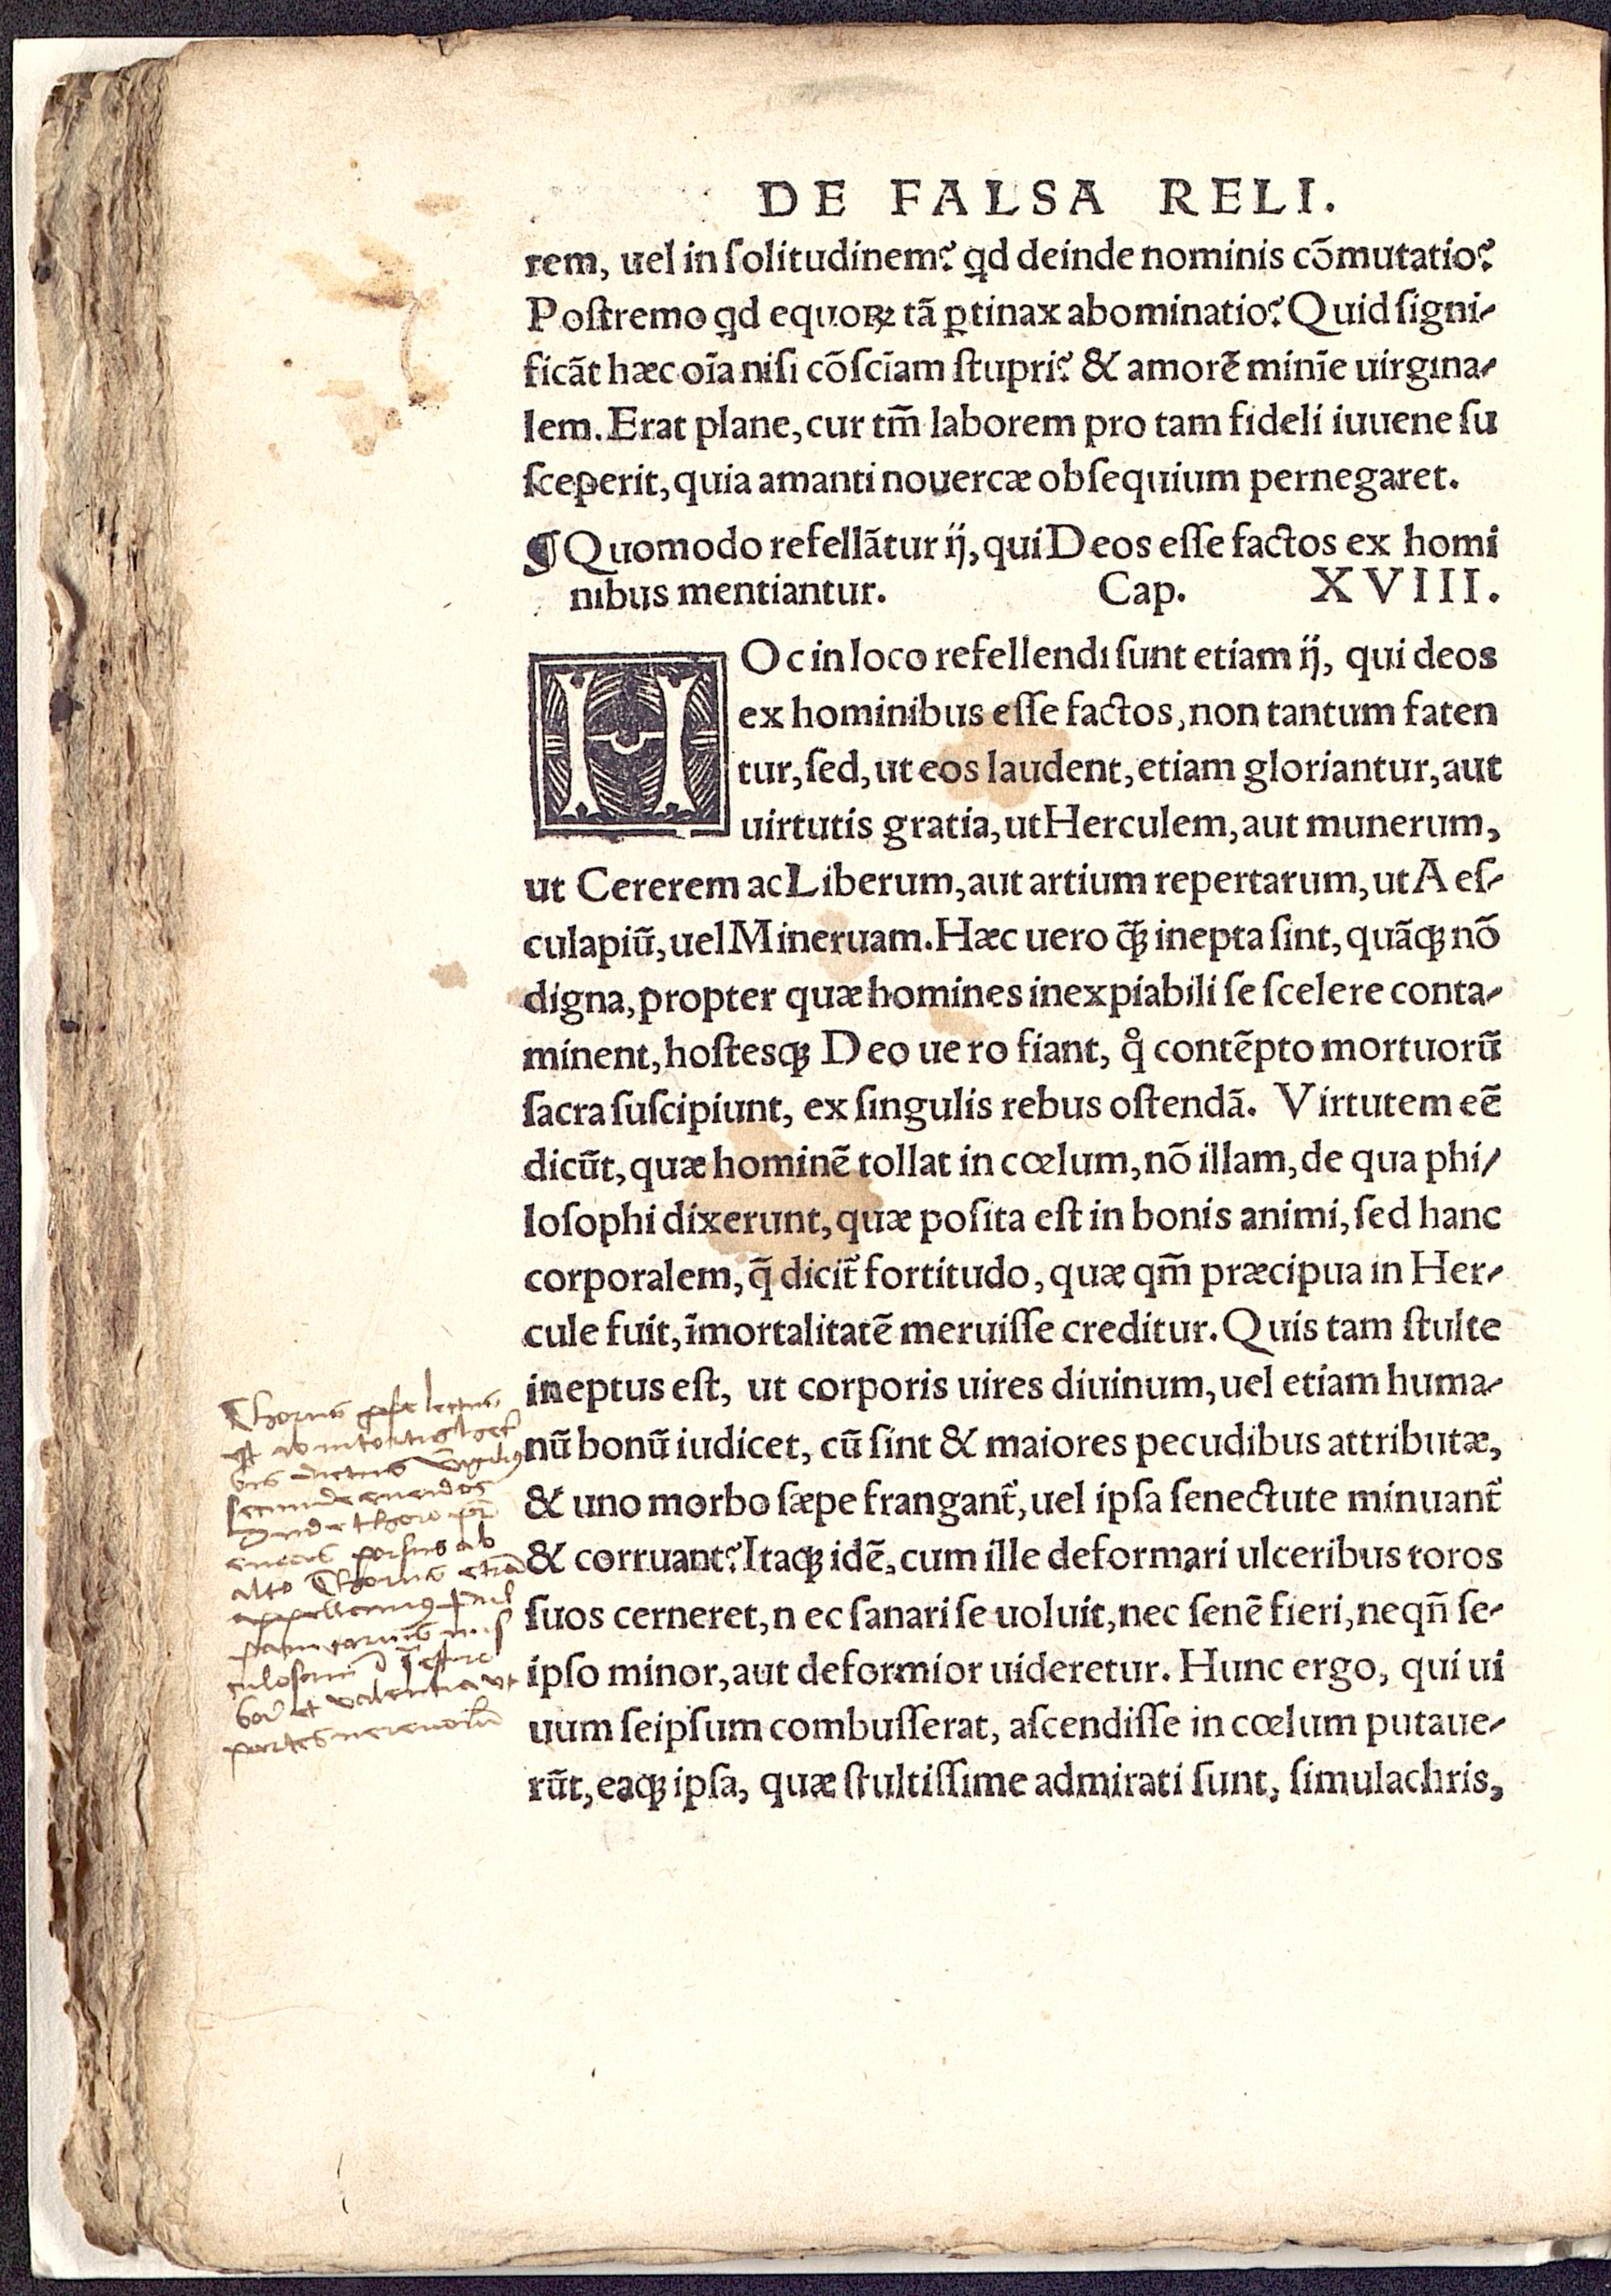 DE FALSA RELI.
rem, uel in ſolitudinem? qd deinde nominis cõmutatio?
Poſtremo qd equoꝝ tã ꝑtinax abominatio? Quid ſigni-
ficãt hæc oĩa niſi cõſcĩam ſtupri? & amorẽ minĩe uirgina-
lem. Erat plane, cur tm̃ laborem pro tam fideli iuuene ſu
ſceperit, quia amanti nouercæ obſequium pernegaret.
¶ Quomodo refellãtur ij, qui Deos eſſe factos ex homi
nibus mentiantur. Cap. XVIII.
HOc in loco refellendi ſunt etiam ij, qui deos
ex hominibus eſſe factos, non tantum faten
tur, ſed, ut eos laudent, etiam gloriantur, aut
uirtutis gratia, ut Herculem, aut munerum,
ut Cererem ac Liberum, aut artium repertarum, ut Aeſ-
culapiũ, uel Mineruam. Hæc uero q̃ꝫ inepta ſint, quãqꝫ nõ
digna, propter quæ homines inexpiabili ſe ſcelere conta-
minent, hoſtesqꝫ Deo uero fiant, qͦ contẽpto mortuorũ
ſacra ſuſcipiunt, ex ſingulis rebus oſtendã. Virtutem eẽ
dicũt, quæ hominẽ tollat in cœlum, nõ illam, de qua phi/
loſophi dixerunt, quæ poſita eſt in bonis animi, ſed hanc
corporalem, q̃ dicit̃ fortitudo, quæ qm̃ præcipua in Her-
cule fuit, ĩmortalitatẽ meruiſſe creditur. Quis tam ſtulte
ineptus eſt, ut corporis uires diuinum, uel etiam huma-
nũ bonũ iudicet, cũ ſint & maiores pecudibus attributæ,
& uno morbo ſæpe frangant̃, uel ipſa ſenectute minuant̃
& corruant? Itaqꝫ idẽ, cum ille deformari ulceribus toros
ſuos cerneret, nec ſanari ſe uoluit, nec ſenẽ fieri, neqñ ſe-
ipſo minor, aut deformior uideretur. Hunc ergo, qui ui
uum ſeipſum combuſſerat, aſcendiſſe in cœlum putaue-
rũt, eaqꝫ ipſa, quæ ſtultiſſime admirati ſunt, ſimulachris,
Thorus lectus
dictus
alto Thorum
et valentia vt